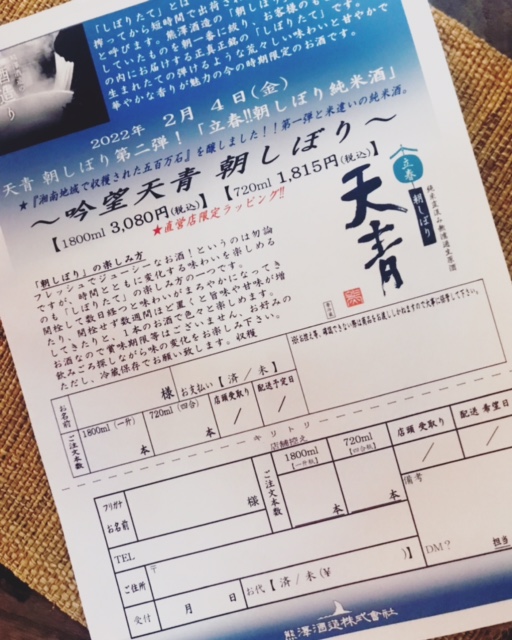 「しぼりたて」とは
搾ってから短時間で出荷さ
と呼びます。熊澤酒造の「朝しぼり
していたものを朝一番に絞り、お客様のもと
の内にお届けする正真正銘の「しぼりたて」です。
生まれたての弾けるような荒々しい味わいと甘やかで
華やかな香りが魅力の今の時期限定のお酒です。
2022年 2月 4日(金)
天青 朝しぼり第二弾!「立春!!朝しぼり純米酒」
★『湘南地域で収穫された五百万石』を醸しました!!第一弾と米違いの純米酒。
～吟望天青 朝しぼり～
【1800ml 3,080円(税込)】【720ml 1,815円(税込)】
★直営店限定ラッピング!!
立春
朝しぼり
天青
純米直汲み無濾過生原酒
「朝しぼり」の楽しみ方
フレッシュでジューシーなお酒!というのは勿論
ですが、時間とともに変化する味わいを楽しめる
のも「しぼりたて」の楽しみ方の一つです。
開栓して数日経つと味わいがまろやかになってき
たり、開栓せず数週間ほど置くと旨味や甘味が増
してきたりと、1本のお酒で色々と楽しめます。
お酒なので賞味期限等はございません。お好みの
飲みごろ探しながら味の変化をお楽しみ下さい。
ただし、冷蔵保存でお願い致します。収穫
※お控え票、確認できない際は商品をお渡ししかねますので大事に保管して下さい。
お名前
様
お支払い【 済 / 未 】
ご注文本数
1800ml (一升)
本
720ml (四合)
本
店頭受取り
/
配送予定日
/
キリトリ
店舗控え
フリガナ
お名前
様
ご注文本数
1800ml
【一升瓶】
本
720ml
【四合瓶】
本
店頭 受取り
/
配送 希望日
/
TEL
備考
ご住所
〒
DM?
担当
受付
月 日
お代【 済 / 未 (¥ )】
熊澤酒造株式会社